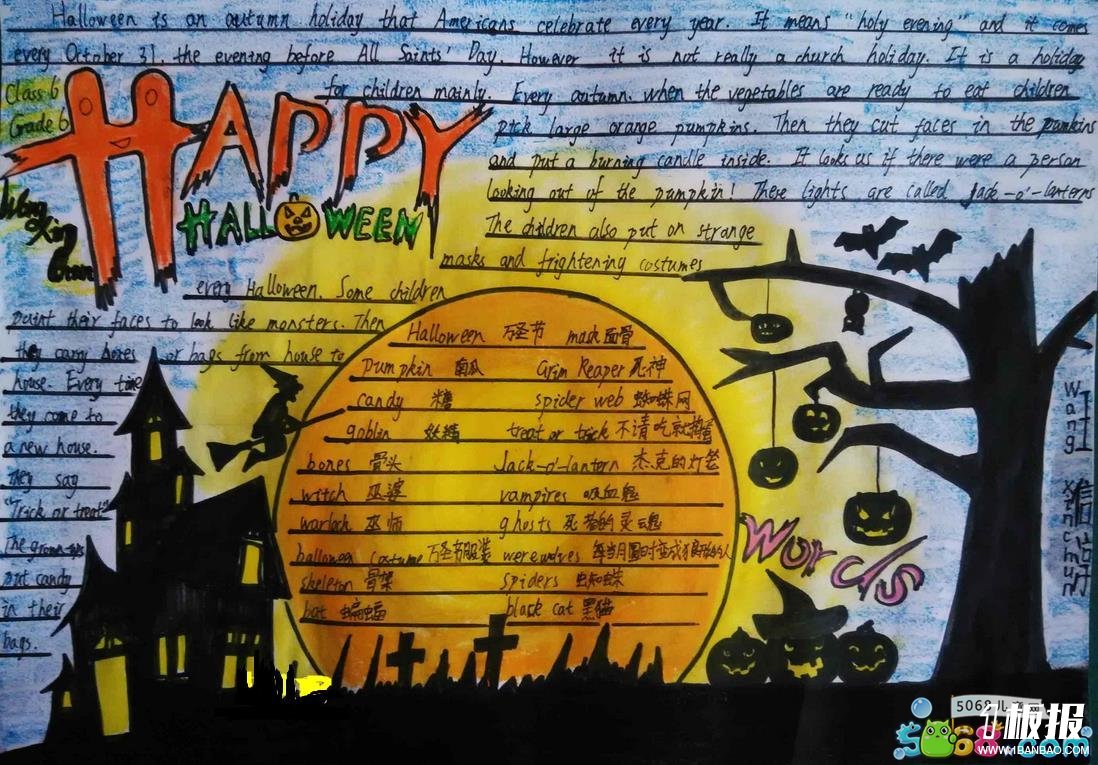 Halloween is an autumn holiday that Americans celebrate every year. It means "holy evening" and it comes
every October 31, the evening before All Saints' Day. However it is not really a church holiday. It is a holiday
for children mainly. Every autumn. when the vegetables are ready to eat children
pick large orange pumpkins. Then they cut faces in the pumkins
and put a burning candle inside. It looks as if there were a person
looking out of the pumpkin! These lights are called Jack-o'-lanterns
The children also put on strange
masks and frightening costumes
every Halloween. Some children
paint their faces to look like monsters. Then
they carry boxes or bags from house to
house. Every time
they come to
a new house.
they say
"Trick or treat"
The grown-ups
put candy
in their
bags.
Class 6
Grade 6
HAPPY
HALLOWEEN
Halloween 万圣节 mask 面骨
Pumpkin 南瓜 Grim Reaper 死神
candy 糖 spider web 蜘蛛网
goblin 妖精 treat or trick 不请吃就捣蛋
bones 骨头 Jack-o'-lantern 杰克的灯笼
witch 巫婆 vampires 吸血鬼
warloch 巫师 ghosts 死者的灵魂
halloween costume 万圣节服装 werewolves 每当月圆时变成狼形的人
skeleton 骨架 spiders 蜘蛛
bat 蝙蝠 black cat 黑猫
Words
Wang xinchun
5068儿童网
5068.com
板报
WWW.1BANBAO.COM